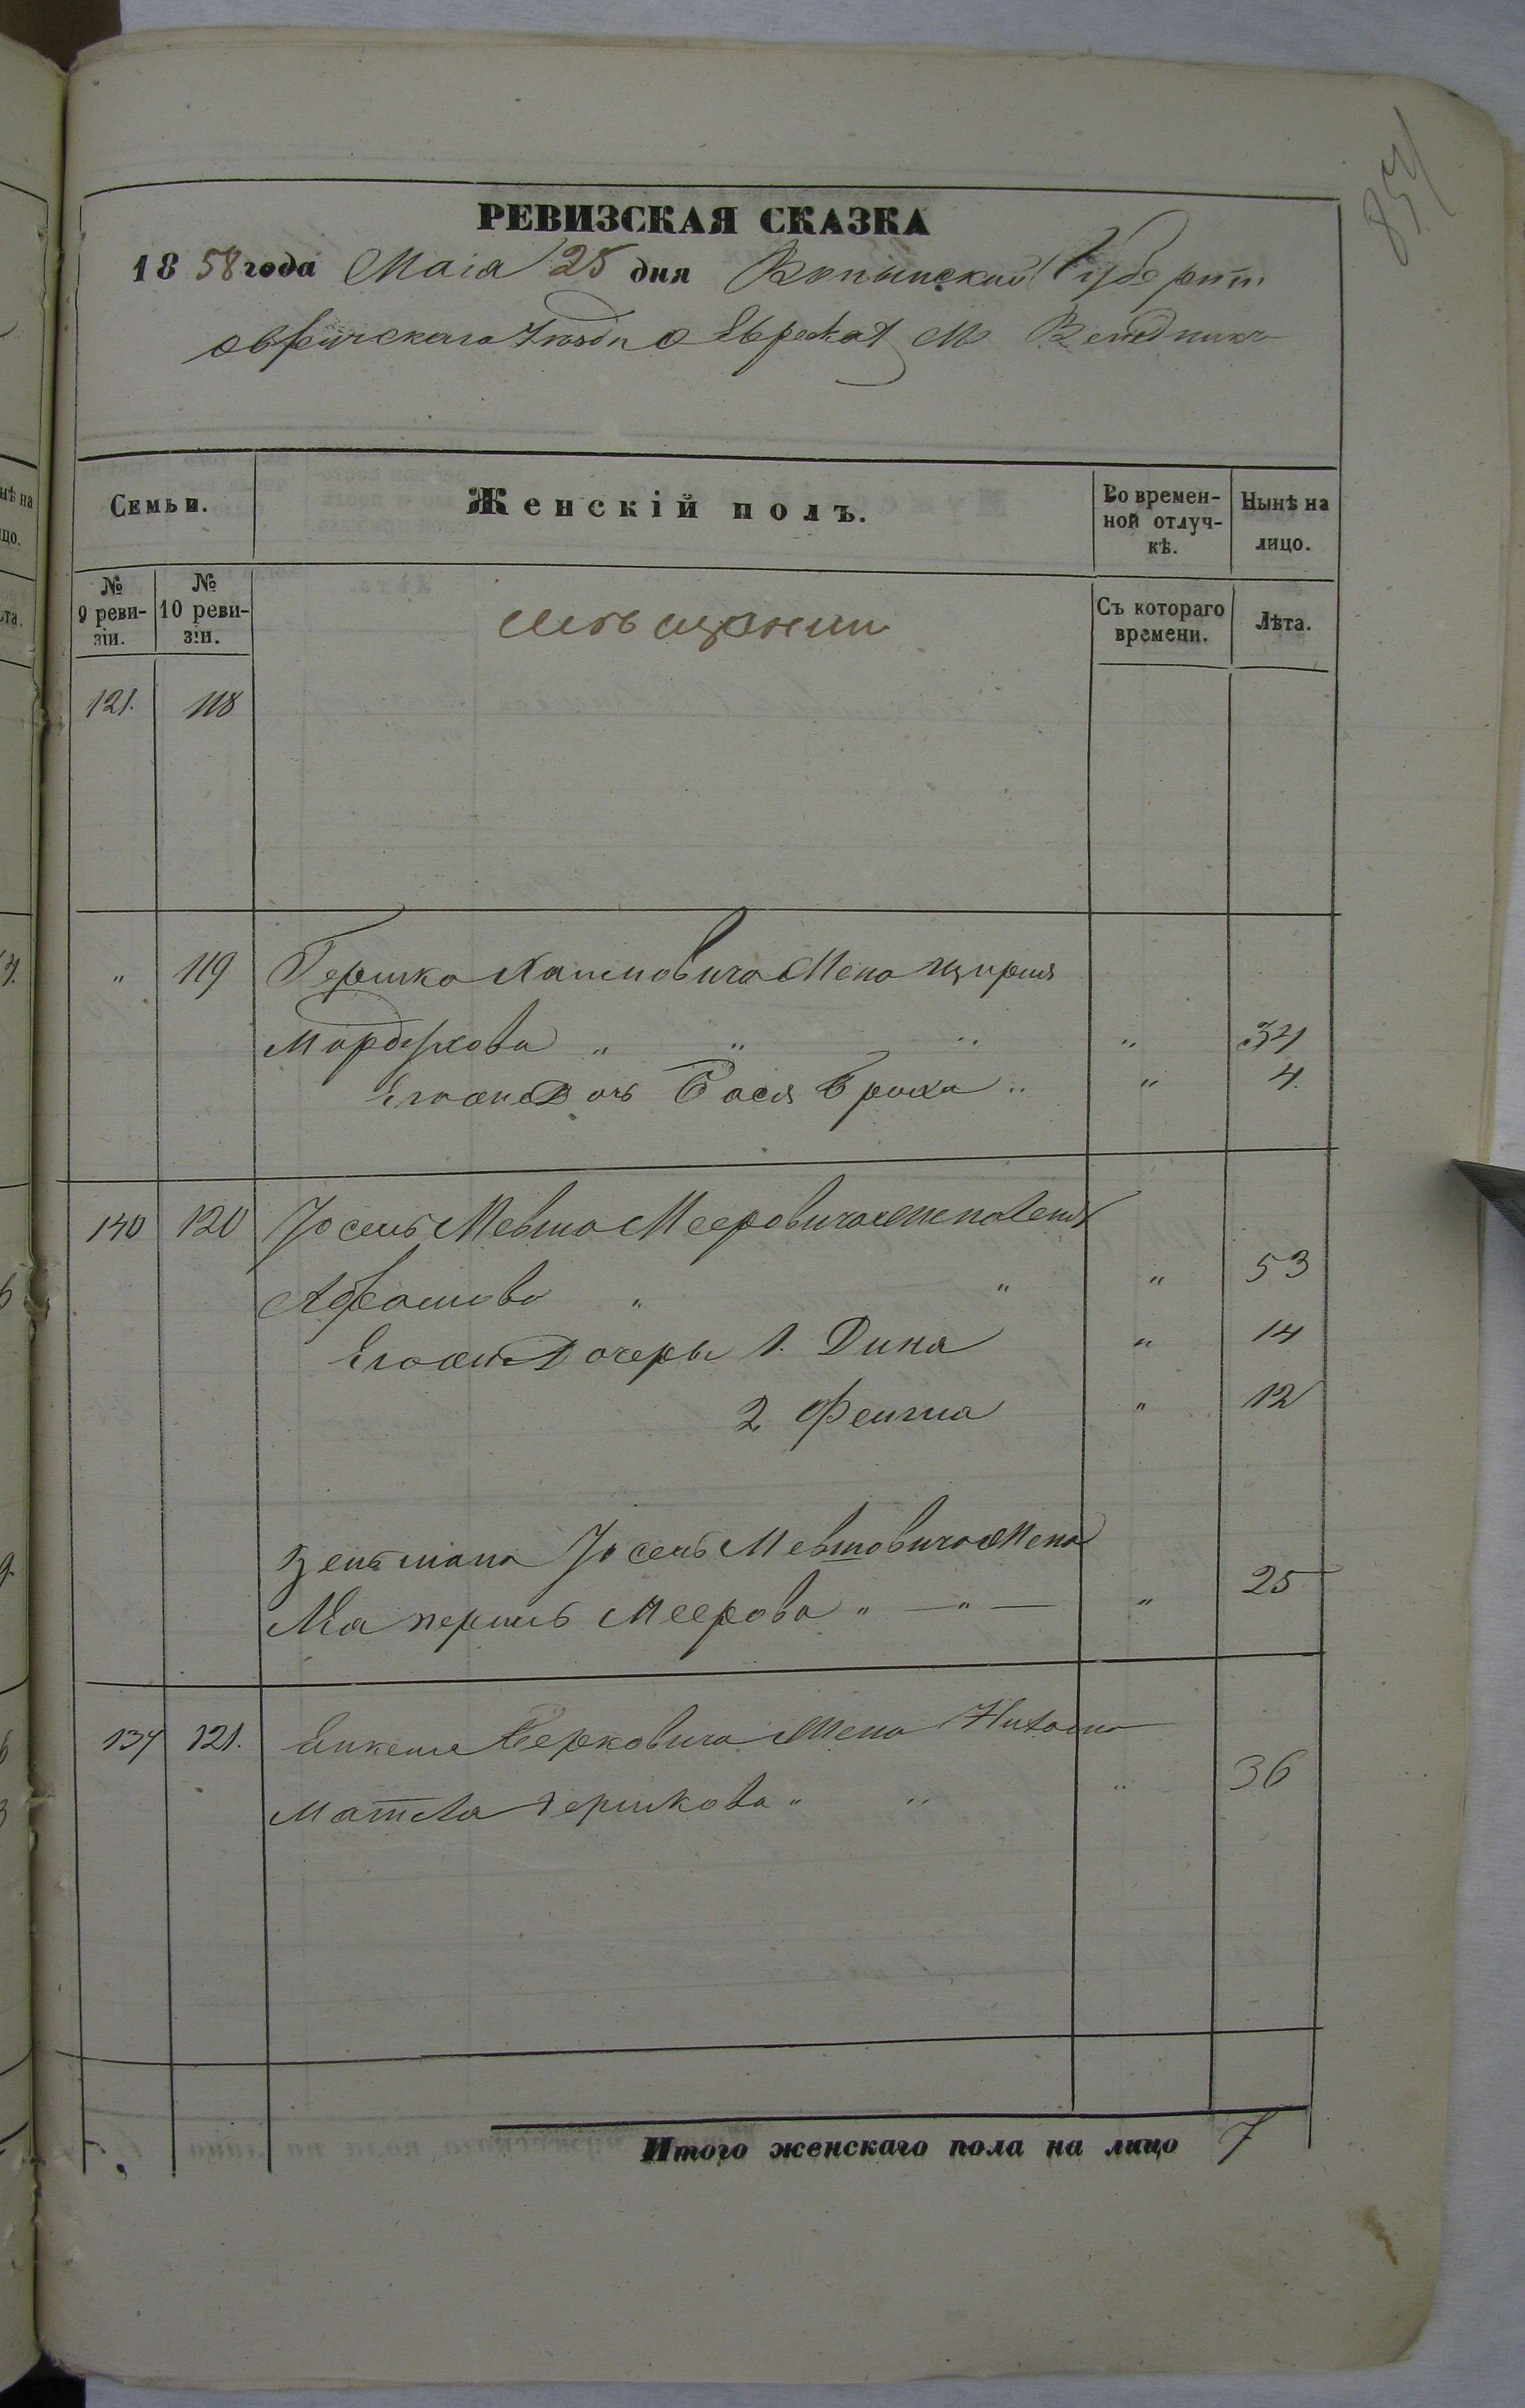 854
РЕВИЗСКАЯ СКАЗКА
1858 года Маія 25 дня Волынской Губерніи
Овручскаго Уезда о Евреяхъ М Веледникъ
Семьи.
Женскій полъ.
Во временной отлучкѣ.
Нынѣ на лицо.
№ 9 ревизіи.
№ 10 ревизіи.
Съ котораго времени.
Лѣта.
Мѣщани
121. 118
" 119 Гершка Хаимовича Жена Ципря
Мордухова " " " " 34
Егоже Дочь Бася Броха " " 4.
140 120 Іосель Мевша Мееровича жена Лея
Абрамова " " " 53
Егоже Дочеры 1. Дина " 14
2 Феига " 12
Зельмана Іосель Мевшовича Жена
Мерова " — " — " 25
134 121. Янкеля Берковича Жена
Матля Гершкова " " " 36
Итого женскаго пола на лицо 7